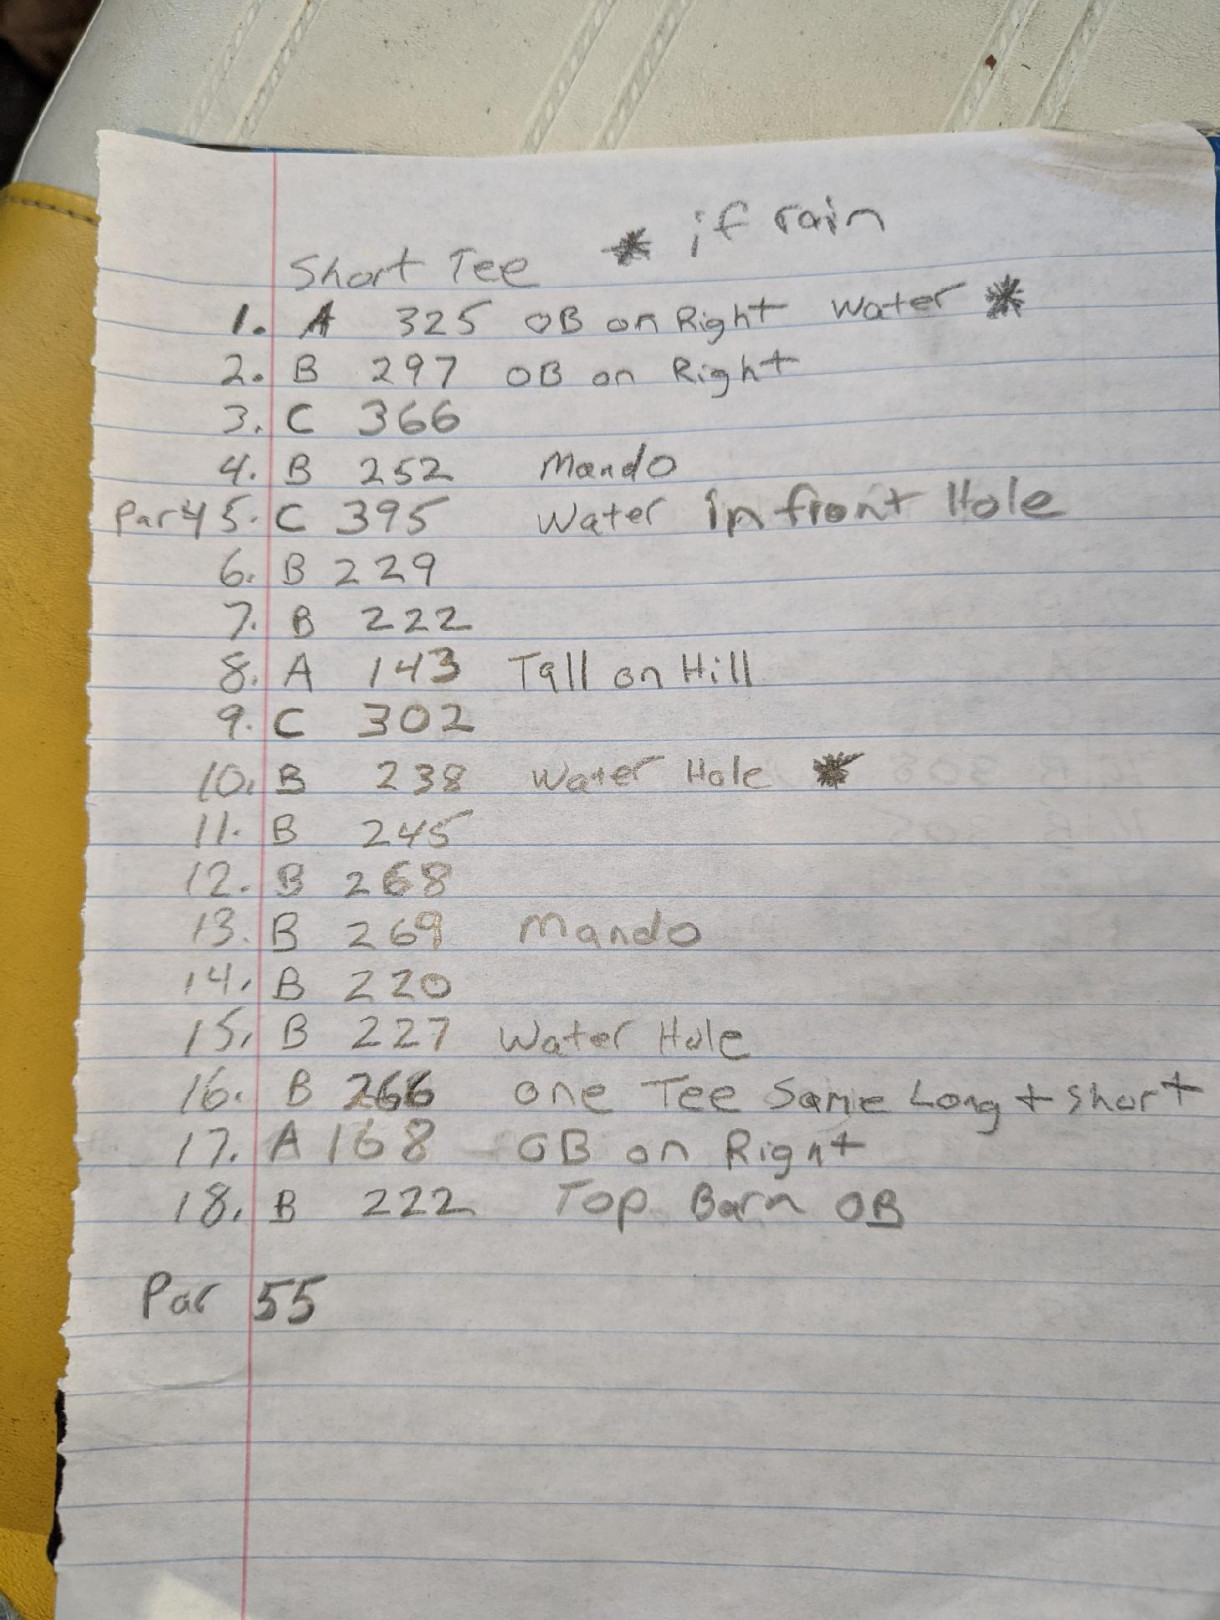 * if rain
Short Tee
1. A 325 OB on Right Water *
2. B 297 OB on Right
3. C 366
4. B 252 Mando
Par 4 5. C 395 Water in front Hole
6. B 229
7. B 222
8. A 143 Tall on Hill
9. C 302
10. B 238 Water Hole *
11. B 245
12. B 268
13. B 269 Mando
14. B 220
15. B 227 Water Hole
16. B 266 one Tee Same Long + Short
17. A 168 OB on Right
18. B 222 Top Barn OB
Par 55